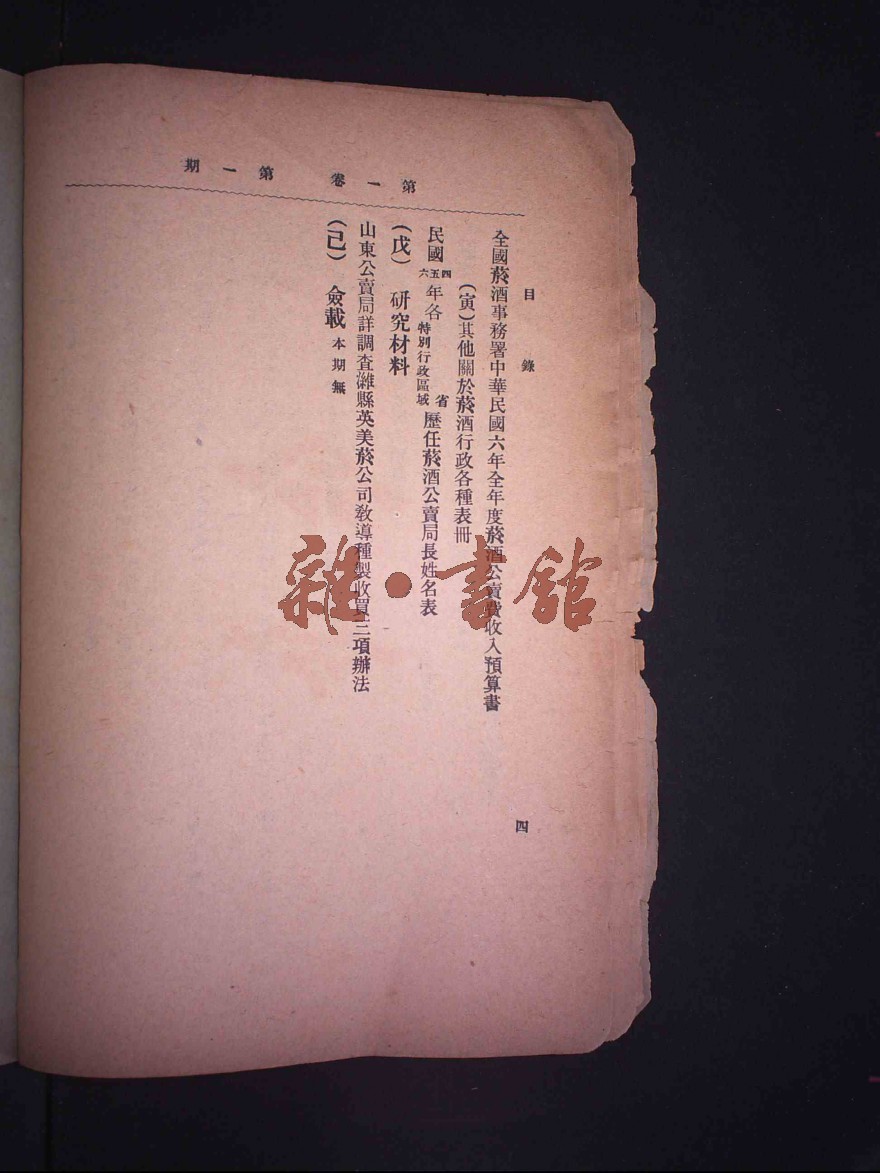 第一卷 第一期
目錄
全國菸酒事務署中華民國六年全年度菸酒公賣費收入預算書
(寅)其他關於菸酒行政各種表冊
民國四五六年各省特別行政區域歷任菸酒公賣局長姓名表
(戊) 研究材料
山東公賣局詳調查濰縣英美菸公司敎導種製收買三項辦法
(己) 僉載 本期無
四
雜·書館